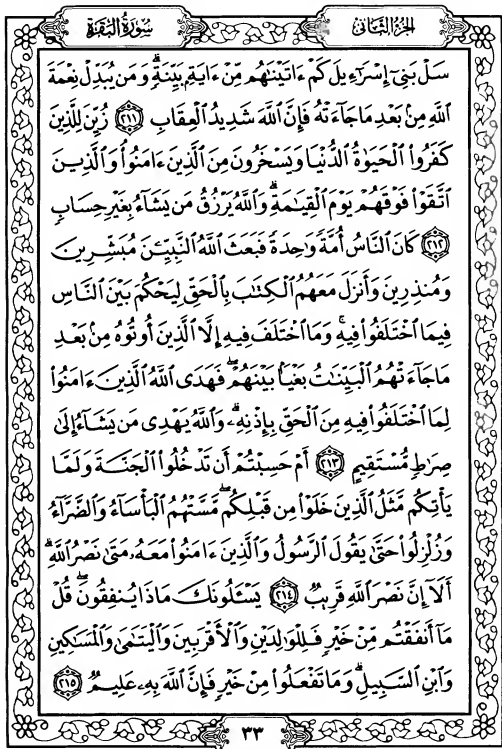 سُورَةُ البَقَرَة
الجزء الثاني
سَلْ بَنِىٓ إِسْرَٰٓءِيلَ كَمْ ءَاتَيْنَٰهُم مِّنْ ءَايَةٍۭ بَيِّنَةٍۗ وَمَن يُبَدِّلْ نِعْمَةَ
ٱللَّهِ مِنۢ بَعْدِ مَا جَآءَتْهُ فَإِنَّ ٱللَّهَ شَدِيدُ ٱلْعِقَابِ ٢١١ زُيِّنَ لِلَّذِينَ
كَفَرُوا۟ ٱلْحَيَوٰةُ ٱلدُّنْيَا وَيَسْخَرُونَ مِنَ ٱلَّذِينَ ءَامَنُوا۟ وَٱلَّذِينَ
ٱتَّقَوْا۟ فَوْقَهُمْ يَوْمَ ٱلْقِيَٰمَةِۗ وَٱللَّهُ يَرْزُقُ مَن يَشَآءُ بِغَيْرِ حِسَابٍ
٢١٢ كَانَ ٱلنَّاسُ أُمَّةً وَٰحِدَةً فَبَعَثَ ٱللَّهُ ٱلنَّبِيِّـۧنَ مُبَشِّرِينَ
وَمُنذِرِينَ وَأَنزَلَ مَعَهُمُ ٱلْكِتَٰبَ بِٱلْحَقِّ لِيَحْكُمَ بَيْنَ ٱلنَّاسِ
فِيمَا ٱخْتَلَفُوا۟ فِيهِۚ وَمَا ٱخْتَلَفَ فِيهِ إِلَّا ٱلَّذِينَ أُوتُوهُ مِنۢ بَعْدِ
مَا جَآءَتْهُمُ ٱلْبَيِّنَٰتُ بَغْيًۢا بَيْنَهُمْۖ فَهَدَى ٱللَّهُ ٱلَّذِينَ ءَامَنُوا۟
لِمَا ٱخْتَلَفُوا۟ فِيهِ مِنَ ٱلْحَقِّ بِإِذْنِهِۦۗ وَٱللَّهُ يَهْدِى مَن يَشَآءُ إِلَىٰ
صِرَٰطٍ مُّسْتَقِيمٍ ٢١٣ أَمْ حَسِبْتُمْ أَن تَدْخُلُوا۟ ٱلْجَنَّةَ وَلَمَّا
يَأْتِكُم مَّثَلُ ٱلَّذِينَ خَلَوْا۟ مِن قَبْلِكُمۖ مَّسَّتْهُمُ ٱلْبَأْسَآءُ وَٱلضَّرَّآءُ
وَزُلْزِلُوا۟ حَتَّىٰ يَقُولَ ٱلرَّسُولُ وَٱلَّذِينَ ءَامَنُوا۟ مَعَهُۥ مَتَىٰ نَصْرُ ٱللَّهِۗ
أَلَآ إِنَّ نَصْرَ ٱللَّهِ قَرِيبٌ ٢١٤ يَسْـَٔلُونَكَ مَاذَا يُنفِقُونَۖ قُلْ
مَآ أَنفَقْتُم مِّنْ خَيْرٍ فَلِلْوَٰلِدَيْنِ وَٱلْأَقْرَبِينَ وَٱلْيَتَٰمَىٰ وَٱلْمَسَٰكِينِ
وَٱبْنِ ٱلسَّبِيلِۗ وَمَا تَفْعَلُوا۟ مِنْ خَيْرٍ فَإِنَّ ٱللَّهَ بِهِۦ عَلِيمٌ ٢١٥
٣٣